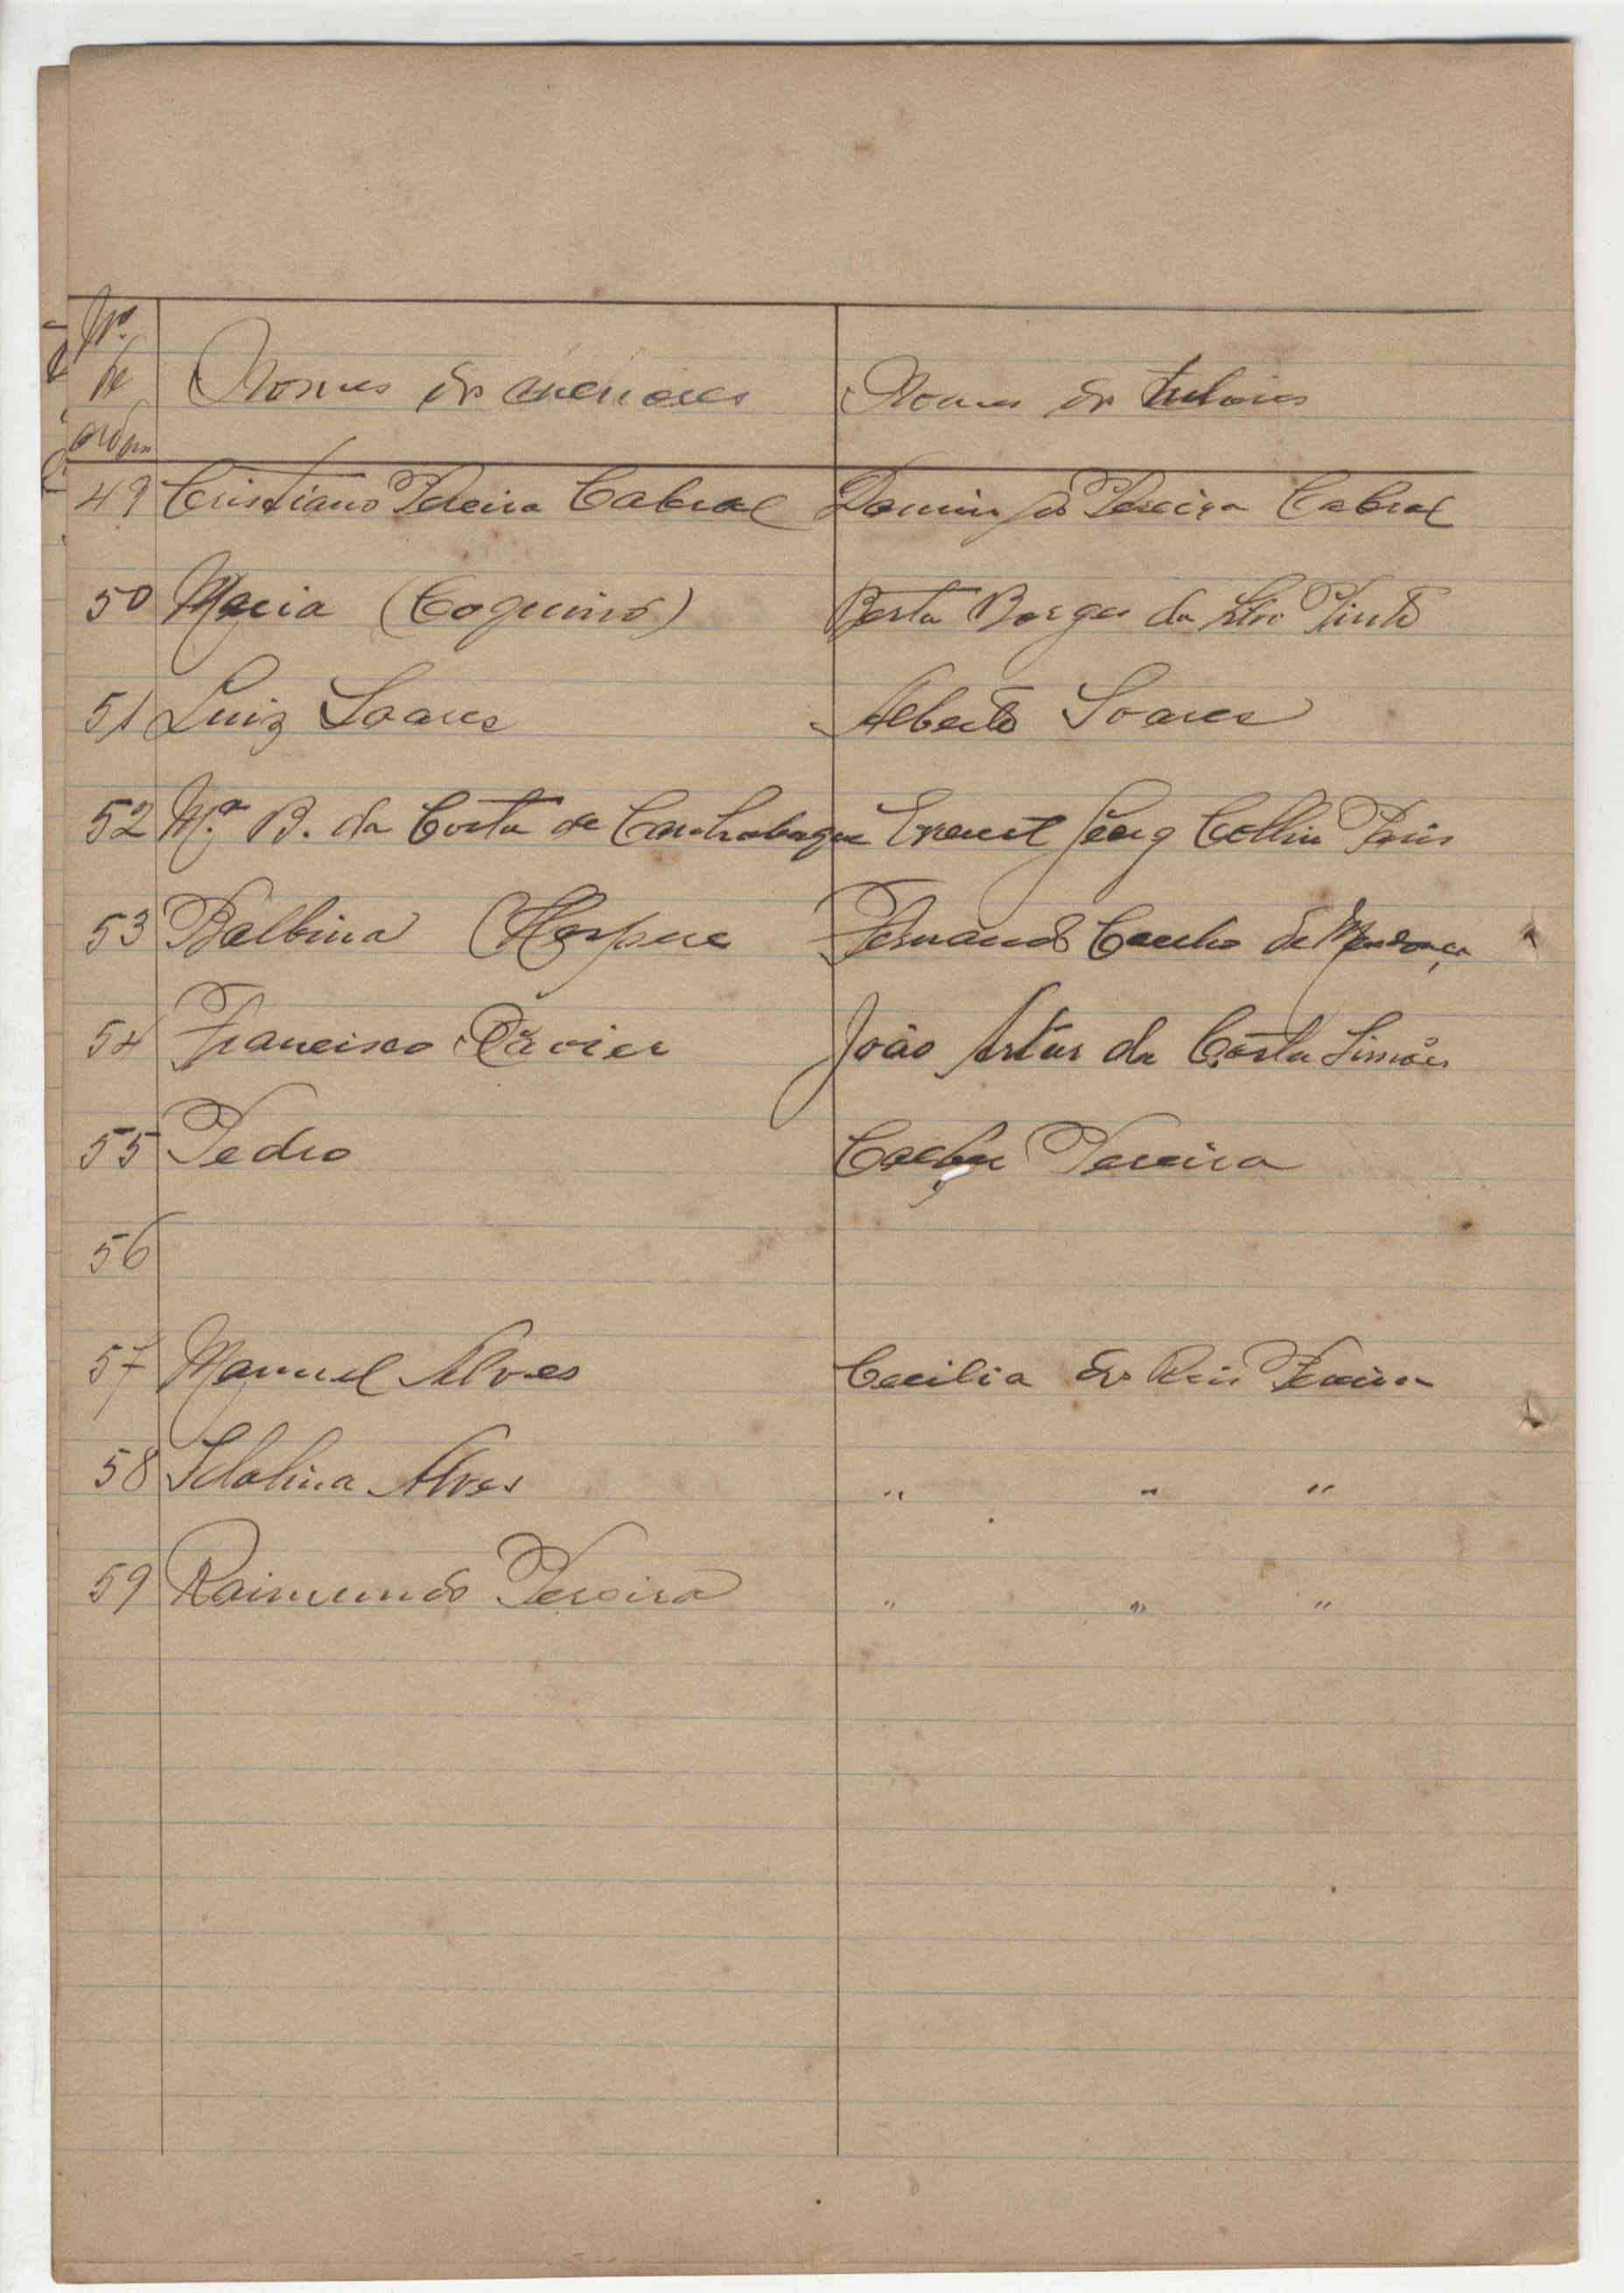 Nº
de
ordem
Nomes dos menores
Nomes dos tutores
49 Cristiano Pereira Cabral Domingos Pereira Cabral
50 Maria (Coquinó) Berta Borges da Pinto
51 Luiz Soares Alberto Soares
52 Mª B. da Costa de Ernest Georg Collin
53 Balbina Fernando Coelho de Mendonça
54 Francisco Xavier João Artur da Costa Simões
55 Pedro Pereira
56
57 Manuel Alves Cecilia dos Reis Pereira
58 Idalina Alves " " "
59 Raimundo Pereira " " "